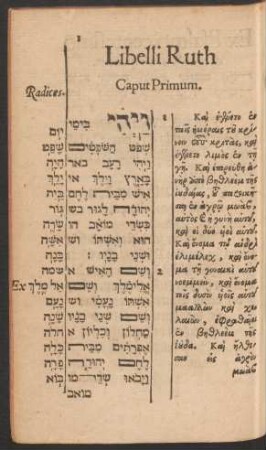 Libelli Ruth
Caput Primum.
Radices.
ויהי
בימי יום
שפט השפטים שפט
ויהי רעב היה
בארץ וילך
איש מבית לחם בית
יהודה לגור גור
בשדי מואב הוא
הוא ואשתו אשה
ושני בניו
ושם האיש
אלימלך ושם Ex אל מלך
אשתו נעמי נעם
ושם שני בניו
מחלון וכליון חלה
אפרתים מבית
לחם יהודה
ויבאו שדי בוא
מואב
Καὶ ἐγένετο ἐν
ταῖς ἡμέραις τῷ κρίνειν
τοὺς κριτὰς, καὶ
ἐγένετο λιμὸς ἐν τῇ
γῇ. Καὶ ἐπορεύθη ἀ-
νὴρ ἀπὸ βηθλεὲμ τῆς
ἰούδας, τοῦ παροικῆ-
σαι ἐν ἀγρῷ μωὰβ,
αὐτὸς καὶ ἡ γυνὴ αὐτοῦ,
καὶ οἱ δύο υἱοὶ αὐτοῦ.
Καὶ ὄνομα τῷ ἀνδρὶ
ἐλιμέλεχ, καὶ ὄνο-
μα τῇ γυναικὶ αὐτοῦ
νοεμμὶν, καὶ ὄνομα
τοῖς δυσὶν υἱοῖς αὐτοῦ
μααλλὼν καὶ χε-
λαιὼν, ἐφραθαῖοι
ἐκ βηθλεὲμ τῆς
ἰούδα. Καὶ ἤλθο-
σαν εἰς ἀγρὸν
μωὰβ